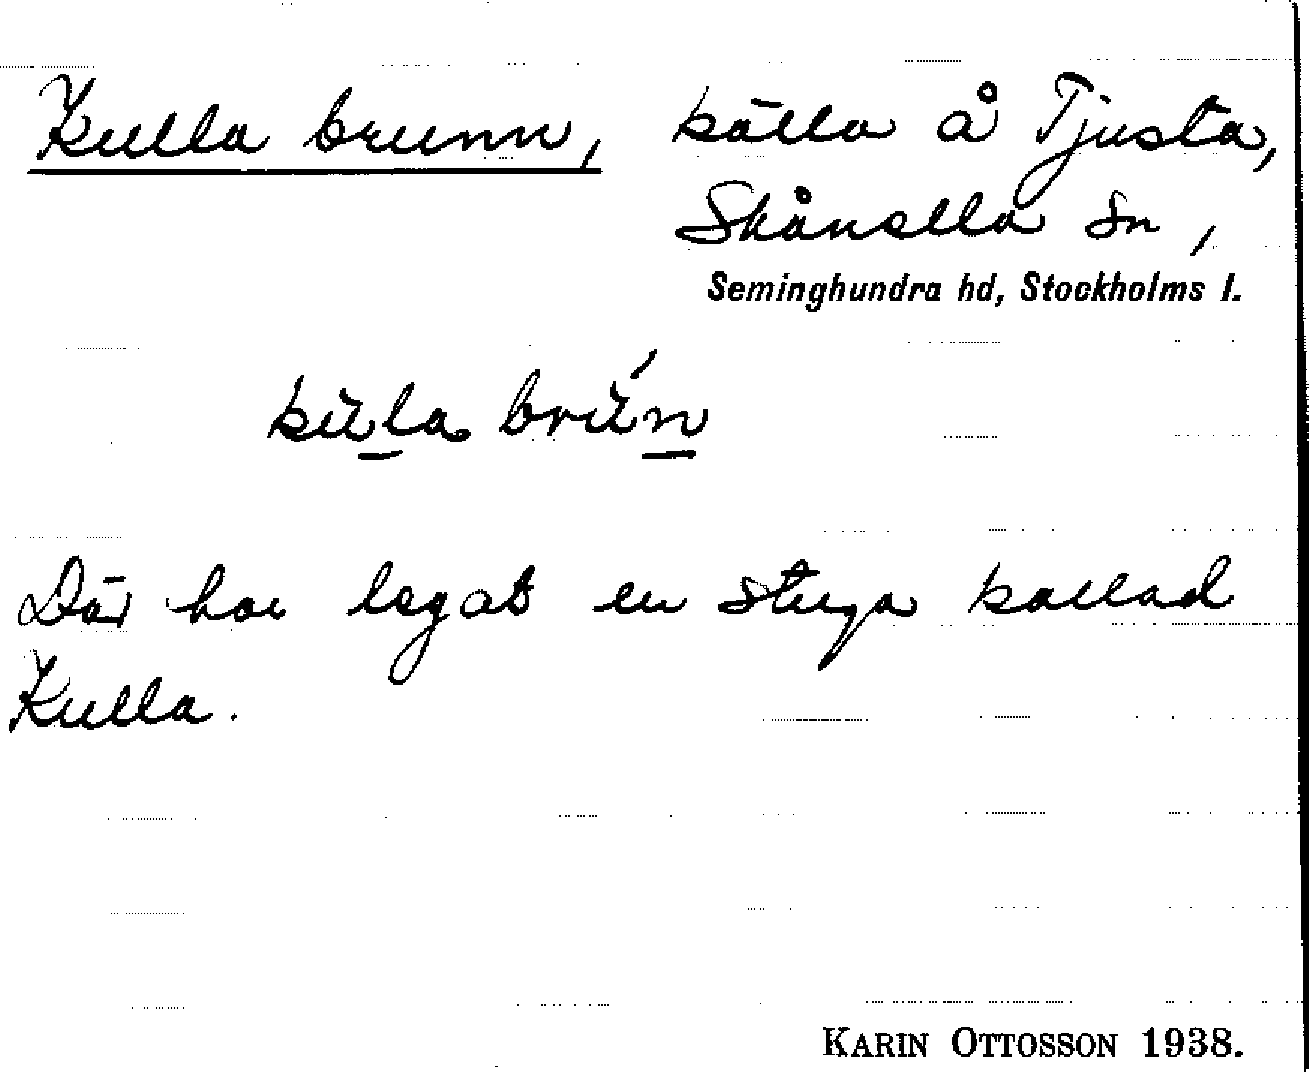 Kulla brunn, källa å Tjusta,
Skånella sn,
Seminghundra hd, Stockholms l.
kùla brún
Där har legat en stuga kallad
Kulla.
KARIN OTTOSSON 1938.